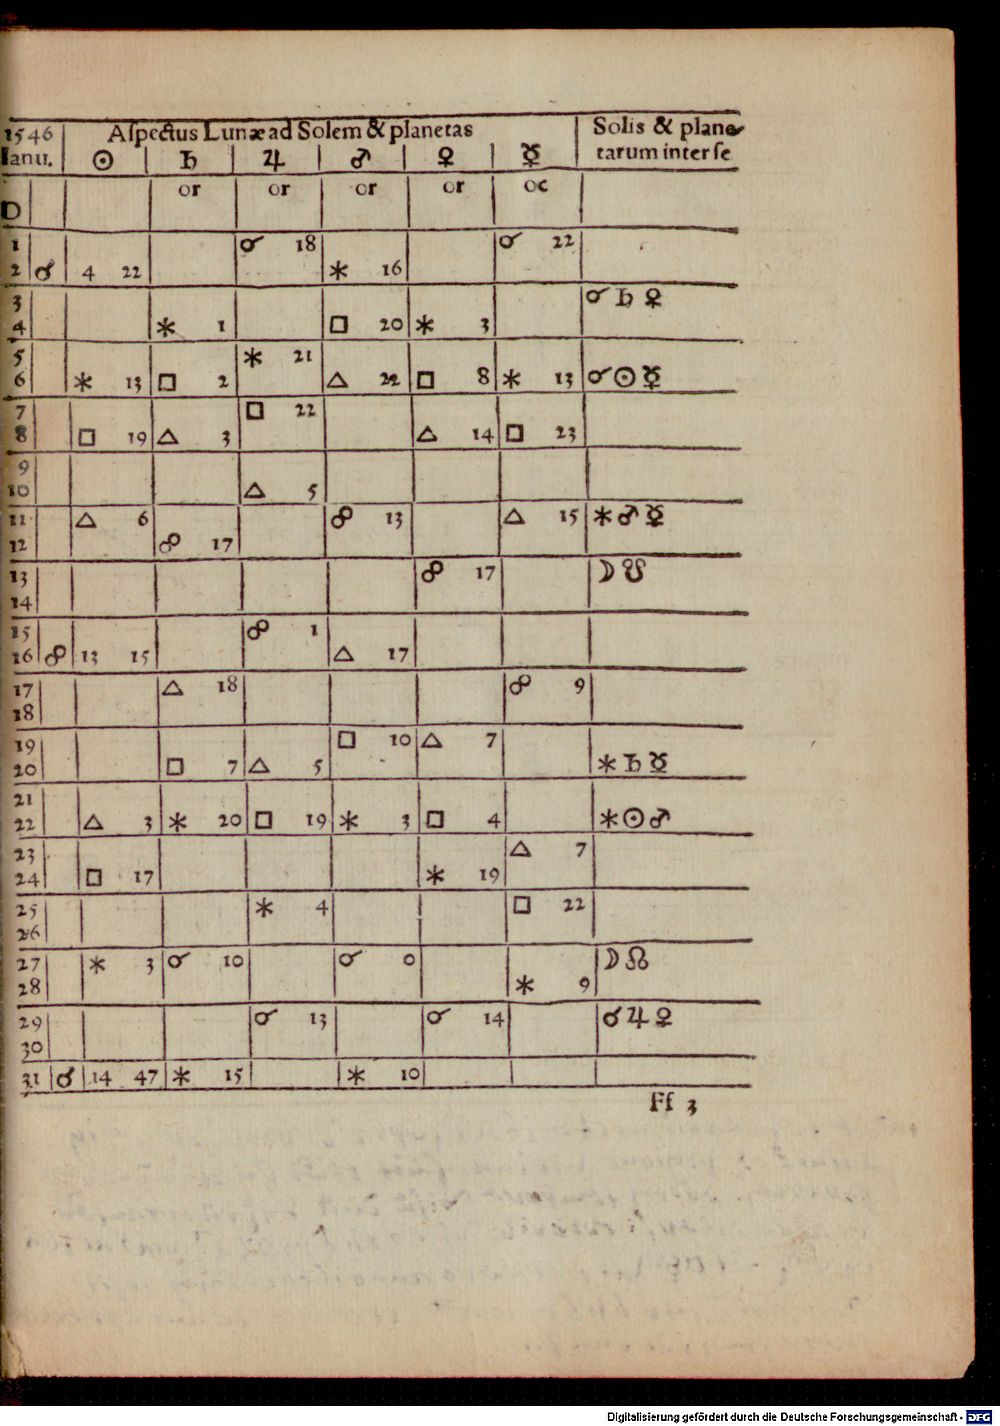 1546 Aſpectus Lunæ ad Solem & planetas Solis & plane
Ianu. ☉ ♄ ♃ ♂ ♀ ☿ tarum inter ſe
or or or or oc
D
1 ☌ 18 ☌ 22
2 ☌ 4 22 ⚹ 16
3 ☌ ♄ ♀
4 ⚹ 1 □ 20 ⚹ 3
5 ⚹ 21
6 ⚹ 13 □ 2 △ 22 □ 8 ⚹ 13 ☌ ☉ ☿
7 □ 22
8 □ 19 △ 3 △ 14 □ 23
9
10 △ 5
11 △ 6 ☍ 13 △ 15 ⚹ ♂ ☿
12 ☍ 17
13 ☍ 17 ☽ ☋
14
15 ☍ 1
16 ☍ 13 15 △ 17
17 △ 18 ☍ 9
18
19 □ 10 △ 7
20 □ 7 △ 5 ⚹ ♄ ☿
21
22 △ 3 ⚹ 20 □ 19 ⚹ 3 □ 4 ⚹ ☉ ♂
23 △ 7
24 □ 17 ⚹ 19
25 ⚹ 4 □ 22
26
27 ⚹ 3 ☌ 10 ☌ 0 ☽ ☊
28 ⚹ 9
29 ☌ 13 ☌ 14 ☌ ♃ ♀
30
31 ☌ 14 47 ⚹ 15 ⚹ 10
Ff 3
Digitalisierung gefördert durch die Deutsche Forschungsgemeinschaft - DFG